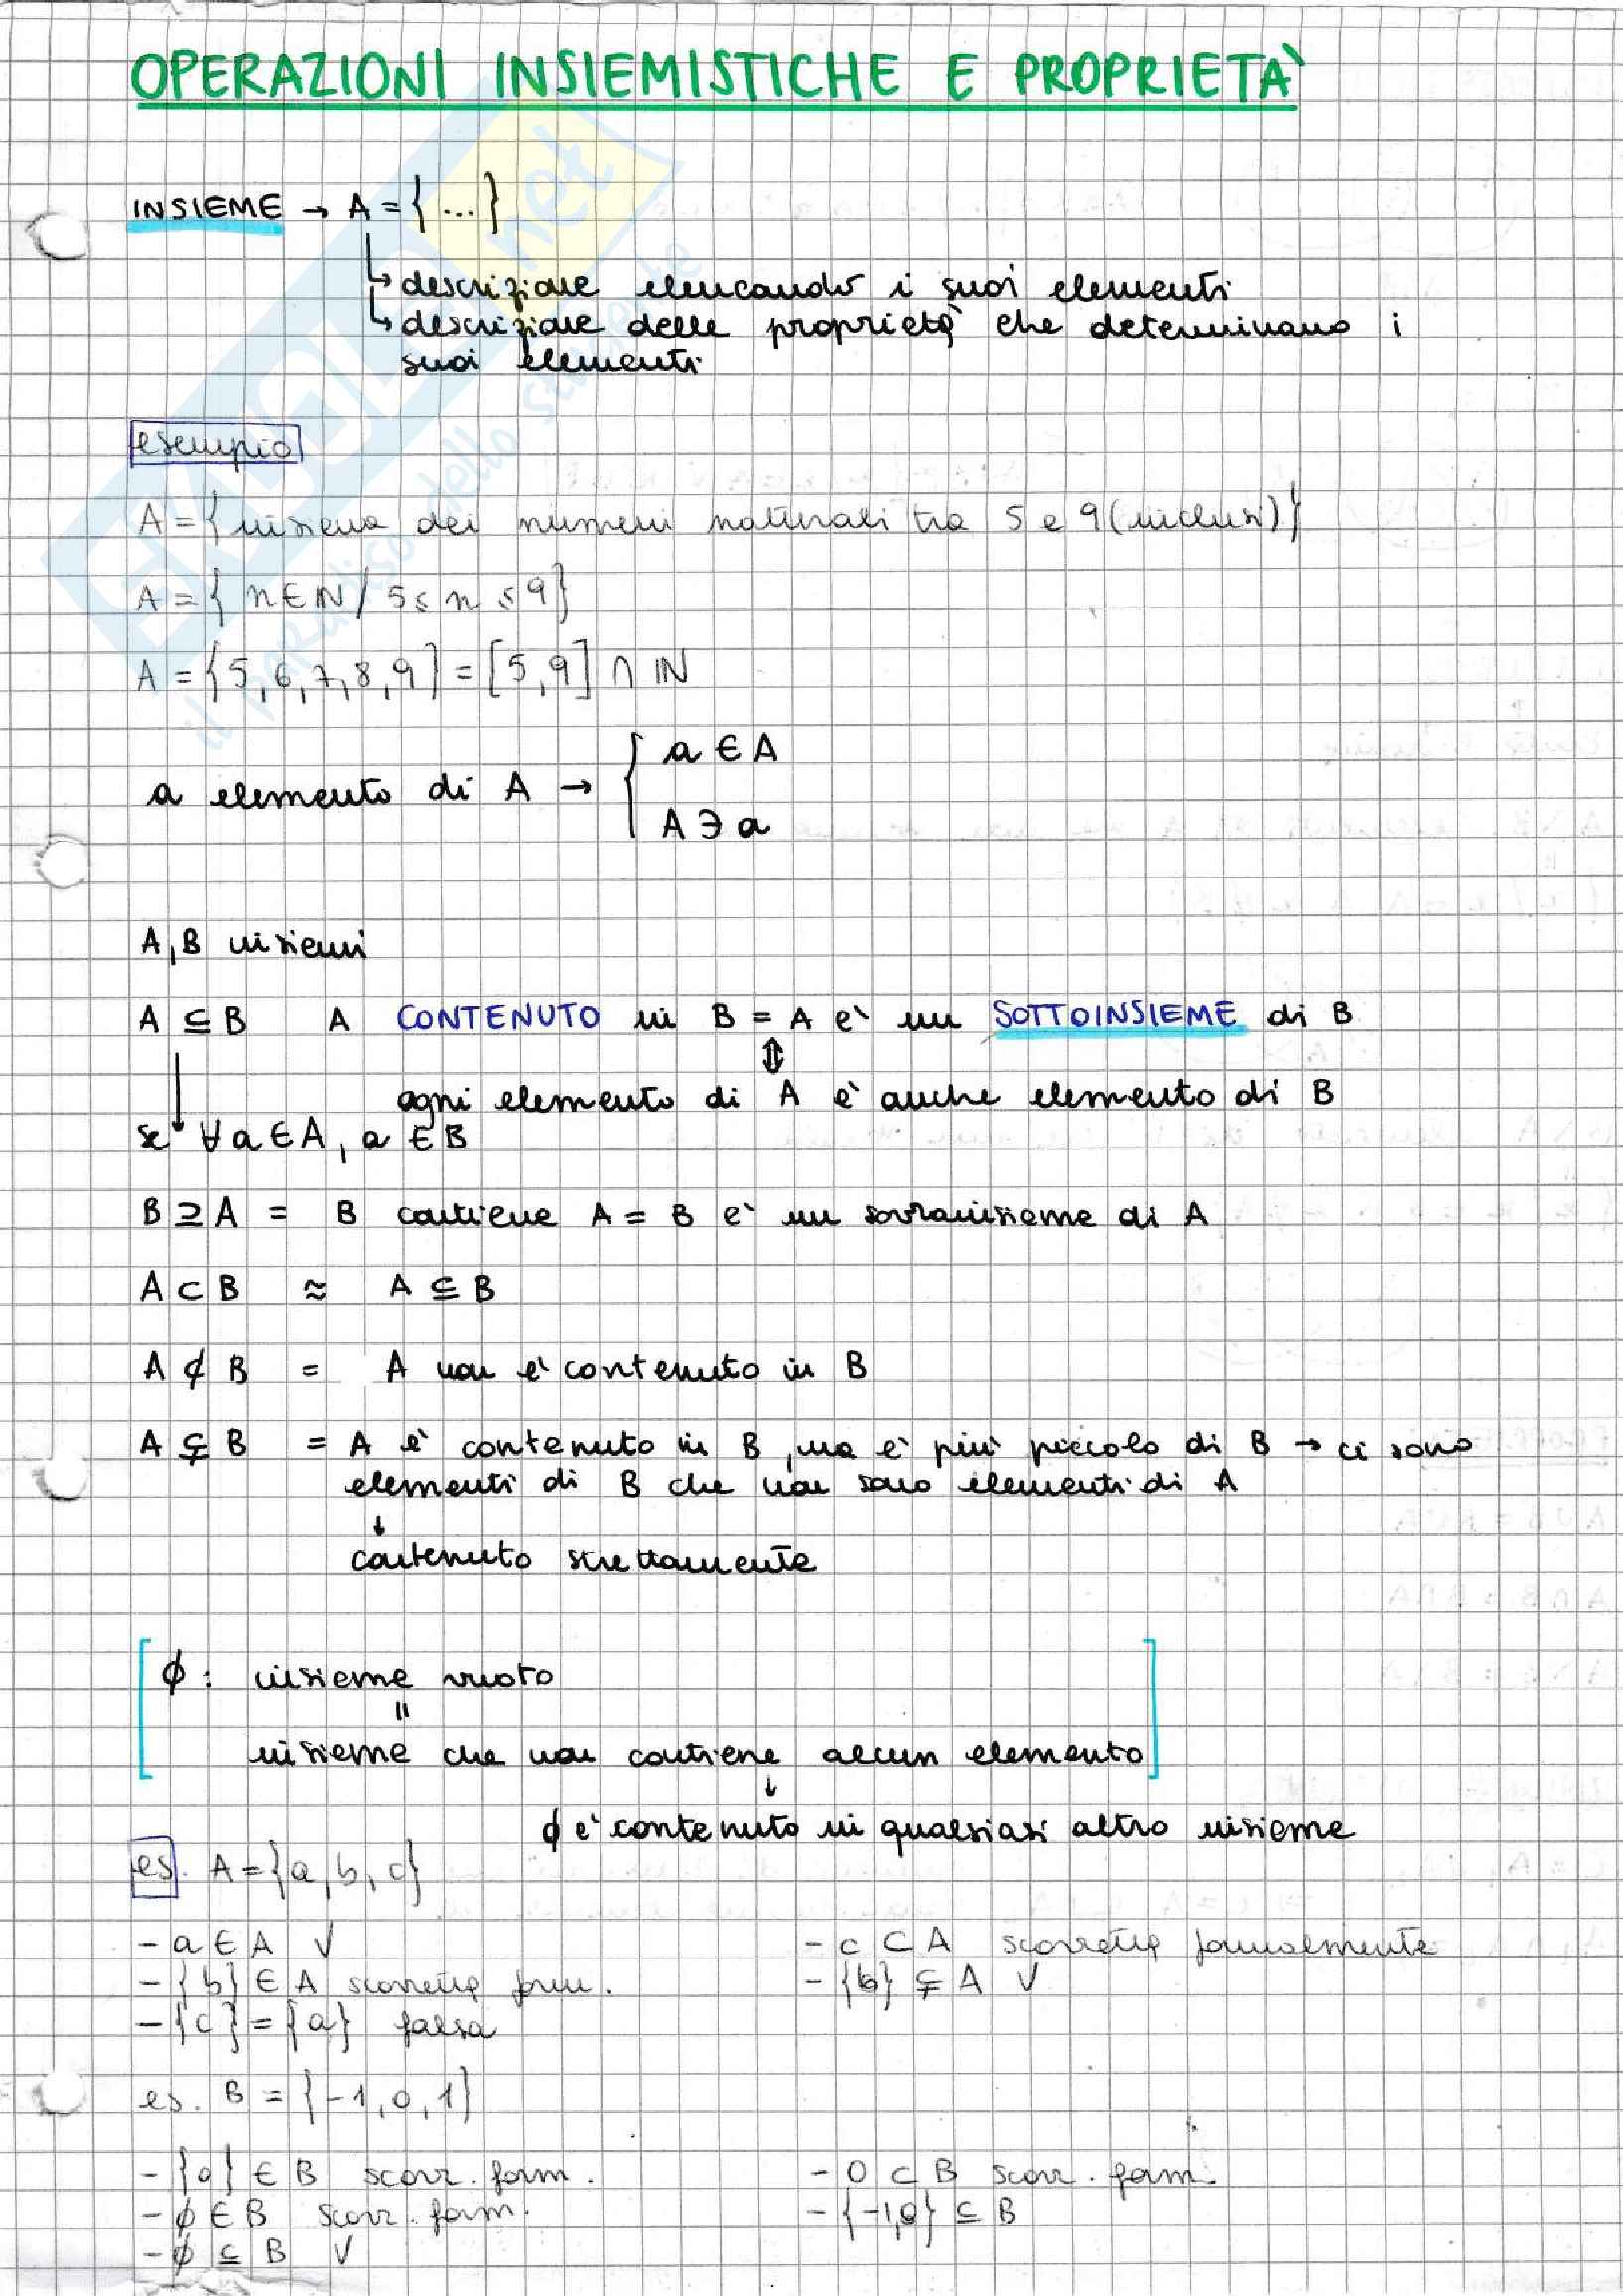 OPERAZIONI INSIEMISTICHE E PROPRIETÀ
INSIEME → A = {...}
↳ descrizione elencando i suoi elementi
↳ descrizione delle proprietà che determinano i
suoi elementi
esempio
A = {insieme dei numeri naturali tra 5 e 9 (inclusi)}
A = {n ∈ ℕ / 5 ≤ n ≤ 9}
A = {5, 6, 7, 8, 9} = [5, 9] ∩ ℕ
a elemento di A → { a ∈ A
A ∋ a
A, B insiemi
A ⊆ B A CONTENUTO in B = A è un SOTTOINSIEME di B
⇕
ogni elemento di A è anche elemento di B
se ∀ a ∈ A, a ∈ B
B ⊇ A = B contiene A = B è un sovrainsieme di A
A ⊂ B ≈ A ⊆ B
A ⊄ B = A non è contenuto in B
A ⊊ B = A è contenuto in B, ma è più piccolo di B → ci sono
elementi di B che non sono elementi di A
↓
contenuto strettamente
[ ϕ : insieme vuoto
=
insieme che non contiene alcun elemento ]
↓
ϕ è contenuto in qualsiasi altro insieme
es. A = {a, b, c}
- a ∈ A V - c ⊂ A scorretta formalmente
- {b} ∈ A scorretta form. - {b} ⊊ A V
- {c} = {a} falsa
es. B = {-1, 0, 1}
- {0} ∈ B scorr. form. - 0 ⊂ B scorr. form.
- ϕ ∈ B scorr. form. - {-1,0} ⊆ B
- ϕ ⊆ B V
SKUOLA.net
il paradiso dello studente